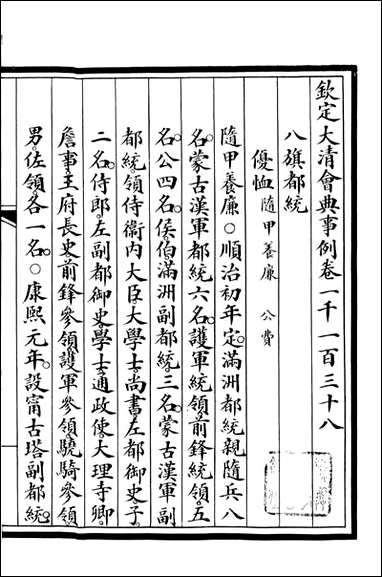 欽定大清會典事例卷一千一百三十八
八旗都統
優恤隨甲養廉 公費
隨甲養廉○順治初年定。滿洲都統親隨兵八
名。蒙古漢軍都統六名。護軍統領。前鋒統領。五
名。公四名。侯伯滿洲副都統。三名。蒙古漢軍副
都統。領侍衞內大臣大學士。尚書。左都御史。子。
二名。侍郎。左副都御史。學士。通政使。大理寺卿。
詹事。王府長史。前鋒參領。護軍參領。驍騎參領。
男。佐領。各一名。○康熙元年。設甯古塔副都統。